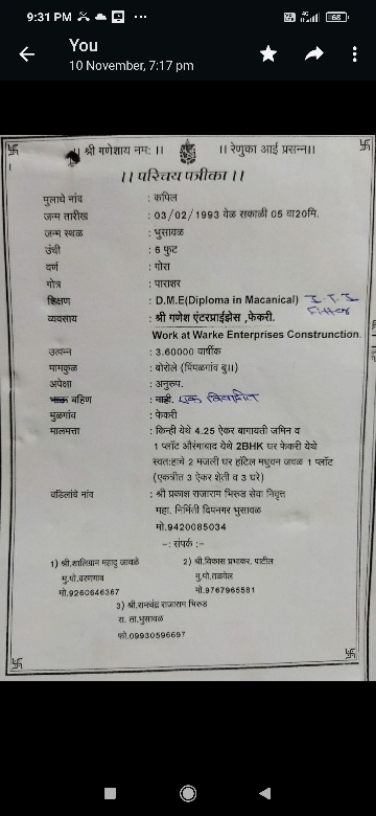 9:31 PM ... 4G 68
You
10 November, 7:17 pm
।। श्री गणेशाय नमः ।। ।। रेणुका आई प्रसन्न।।
।। परिचय पत्रीका ।।
मुलाचे नांव : कपिल
जन्म तारीख : 03/02/1993 वेळ सकाळी 05 वा20मि.
जन्म स्थळ : भुसावळ
उंची : 6 फुट
वर्ण : गोरा
गोत्र : पाराशर
शिक्षण : D.M.E(Diploma in Macanical) I.T.I
Fitter
व्यवसाय : श्री गणेश एंटरप्राईझेस ,फेकरी.
Work at Warke Enterprises Construnction.
उत्पन्न : 3.60000 वार्षीक
मामकुळ : बोरोले (पिंपळगांव बु॥)
अपेक्षा : अनुरुप.
बहिण : नाही. एक विवाहीत
मुळगांव : फेकरी
मालमत्ता : किन्ही येथे 4.25 ऐकर बागायती जमिन व
1 प्लॉट औरंगाबाद येथे 2BHK घर फेकरी येथे
स्वतःहाचे 2 मजली घर हॉटेल मधुवन जवळ 1 प्लॉट
(एकत्रीत 3 ऐकर शेती व 3 घरे)
वडिलांचे नांव : श्री प्रकाश राजाराम भिरुड सेवा निवृत्त
महा. निर्मिती दिपनगर भुसावळ
मो.9420085034
-: संपर्क :-
1) श्री.शालिग्राम महादु जावळे 2) श्री.विकास प्रभाकर. पाटील
मु.पो.वरणगाव मु.पो.तळवेल
मो.9260646367 मो.9767965581
3) श्री.रामचंद्र राजाराम भिरुड
रा. ता.भुसावळ
फो.09930596697